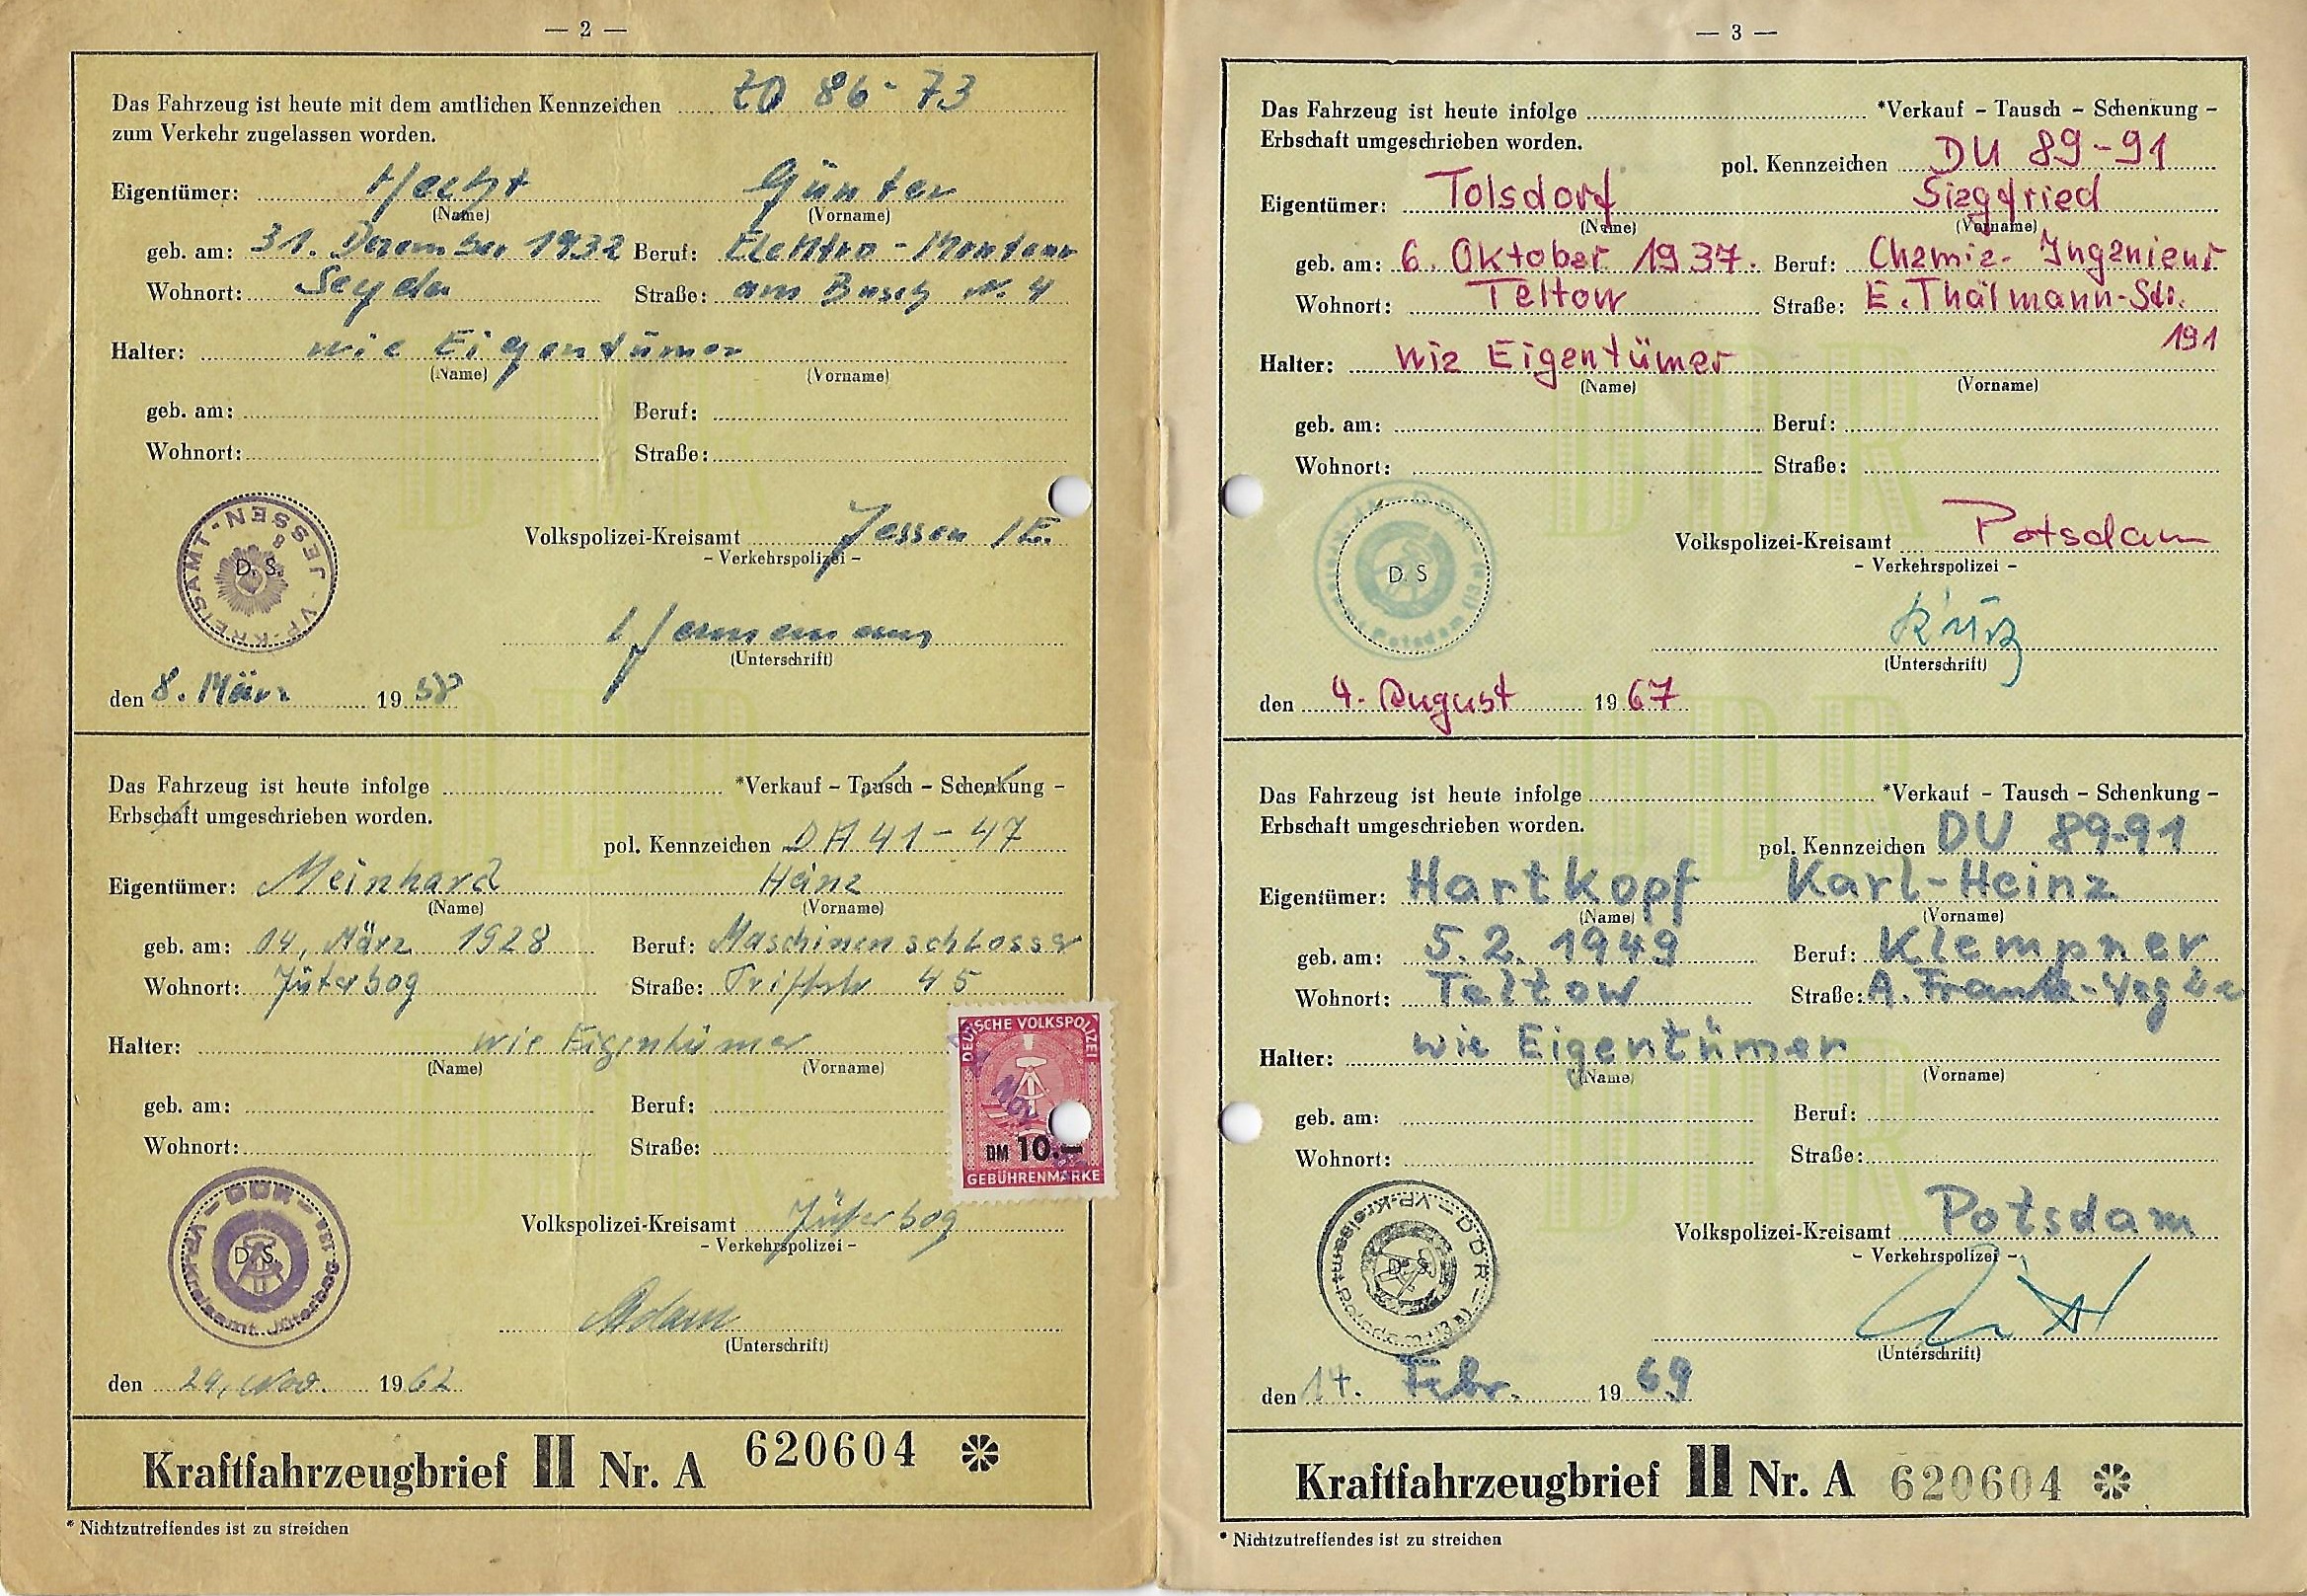 — 2 —
Das Fahrzeug ist heute mit dem amtlichen Kennzeichen ZD 86-73
zum Verkehr zugelassen worden.
Eigentümer: Hecht Günter
(Name) (Vorname)
geb. am: 31. Dezember 1932 Beruf: Elektro-Monteur
Wohnort: Seyda Straße: am Busch N. 4
Halter: wie Eigentümer
(Name) (Vorname)
geb. am: Beruf:
Wohnort: Straße:
VP-KREISAMT-JESSEN
8
D. S.
Volkspolizei-Kreisamt Jessen /E.
- Verkehrspolizei -
(Unterschrift)
den 8. März 1958
Das Fahrzeug ist heute infolge *Verkauf - Tausch - Schenkung -
Erbschaft umgeschrieben worden.
pol. Kennzeichen DH 41-47
Eigentümer: Meinhard Heinz
(Name) (Vorname)
geb. am: 14. März 1928 Beruf: Maschinenschlosser
Wohnort: Jüterbog Straße: Triftstr 45
Halter: wie Eigentümer
(Name) (Vorname)
geb. am: Beruf:
Wohnort: Straße:
DEUTSCHE VOLKSPOLIZEI
DM 10.—
GEBÜHRENMARKE
DDR
VP-Kreisamt Jüterbog
D. S.
Volkspolizei-Kreisamt Jüterbog
- Verkehrspolizei -
Adam
(Unterschrift)
den 29. Nov. 1962
Kraftfahrzeugbrief II Nr. A 620604
* Nichtzutreffendes ist zu streichen
— 3 —
Das Fahrzeug ist heute infolge *Verkauf - Tausch - Schenkung -
Erbschaft umgeschrieben worden.
pol. Kennzeichen DU 89-91
Eigentümer: Tolsdorf Siegfried
(Name) (Vorname)
geb. am: 6. Oktober 1937. Beruf: Chemie-Ingenieur
Wohnort: Teltow Straße: E. Thälmann-Str.
191
Halter: wie Eigentümer
(Name) (Vorname)
geb. am: Beruf:
Wohnort: Straße:
D. S
Volkspolizei-Kreisamt Potsdam
- Verkehrspolizei -
(Unterschrift)
den 4. August 1967
Das Fahrzeug ist heute infolge *Verkauf - Tausch - Schenkung -
Erbschaft umgeschrieben worden.
pol. Kennzeichen DU 89-91
Eigentümer: Hartkopf Karl-Heinz
(Name) (Vorname)
geb. am: 5.2.1949 Beruf: Klempner
Wohnort: Teltow Straße: A. Frank-Weg
Halter: wie Eigentümer
(Name) (Vorname)
geb. am: Beruf:
Wohnort: Straße:
DDR
VP-Kreisamt
D. S.
Volkspolizei-Kreisamt Potsdam
- Verkehrspolizei -
(Unterschrift)
den 14. Febr. 1969
Kraftfahrzeugbrief II Nr. A 620604
* Nichtzutreffendes ist zu streichen